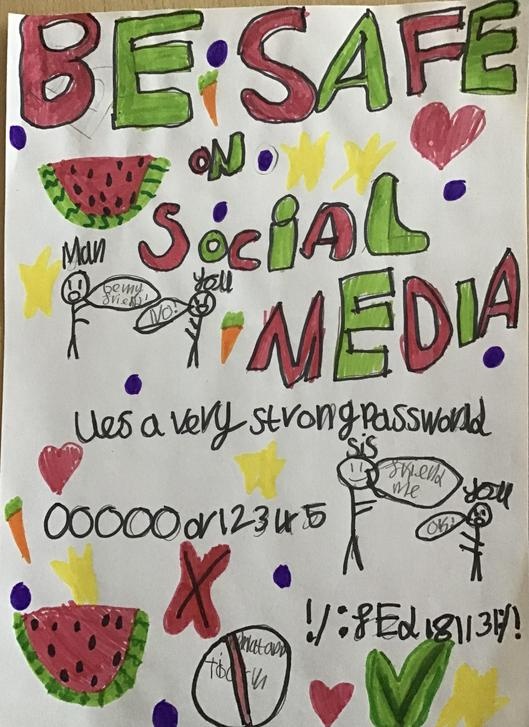 BE SAFE
ON
SOCIAL
MEDIA
Man
Be my friend!
You
No!
Ues a very strong password
Sis
friend me
You
OK!
00000 or 12345
X